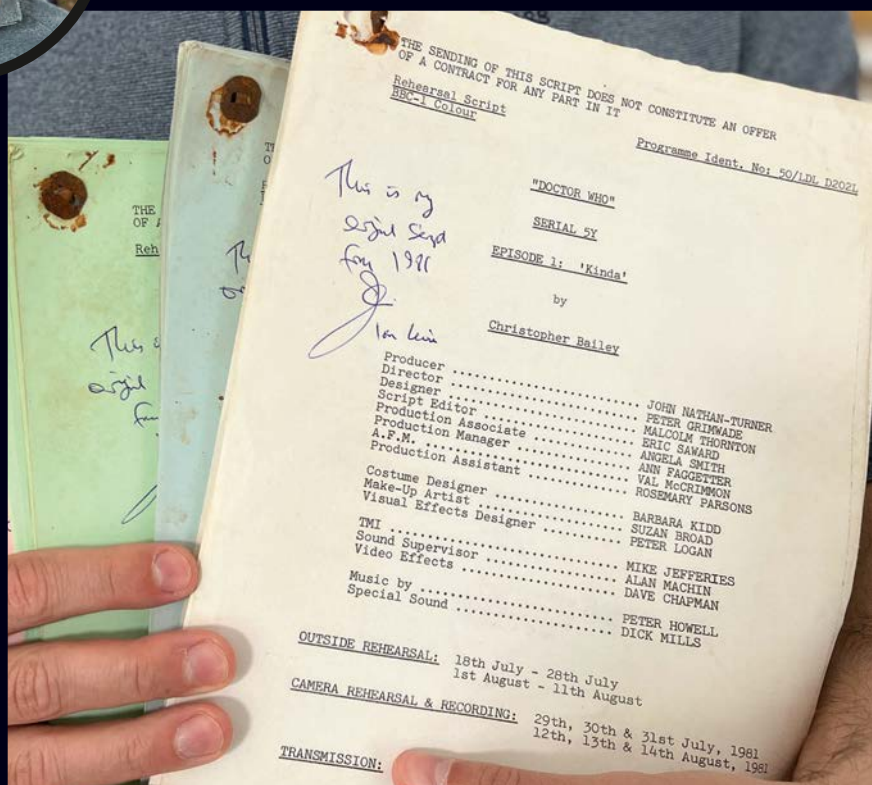 THE SENDING OF THIS SCRIPT DOES NOT CONSTITUTE AN OFFER
OF A CONTRACT FOR ANY PART IN IT
Rehearsal Script
BBC-1 Colour
Programme Ident. No: 50/LDL D202L
"DOCTOR WHO"
SERIAL 5Y
EPISODE 1: 'Kinda'
by
Christopher Bailey
This is my
original Script
from 1981
Ian Levine
Producer .......................... JOHN NATHAN-TURNER
Director .......................... PETER GRIMWADE
Designer .......................... MALCOLM THORNTON
Script Editor ..................... ERIC SAWARD
Production Associate .............. ANGELA SMITH
Production Manager ................ ANN FAGGETTER
A.F.M. ............................ VAL McCRIMMON
Production Assistant .............. ROSEMARY PARSONS
Costume Designer .................. BARBARA KIDD
Make-Up Artist .................... SUZAN BROAD
Visual Effects Designer ........... PETER LOGAN
TMI ............................... MIKE JEFFERIES
Sound Supervisor .................. ALAN MACHIN
Video Effects ..................... DAVE CHAPMAN
Music by .......................... PETER HOWELL
Special Sound ..................... DICK MILLS
OUTSIDE REHEARSAL: 18th July - 28th July
1st August - 11th August
CAMERA REHEARSAL & RECORDING: 29th, 30th & 31st July, 1981
12th, 13th & 14th August, 1981
TRANSMISSION:
THE
OF
Reh
This